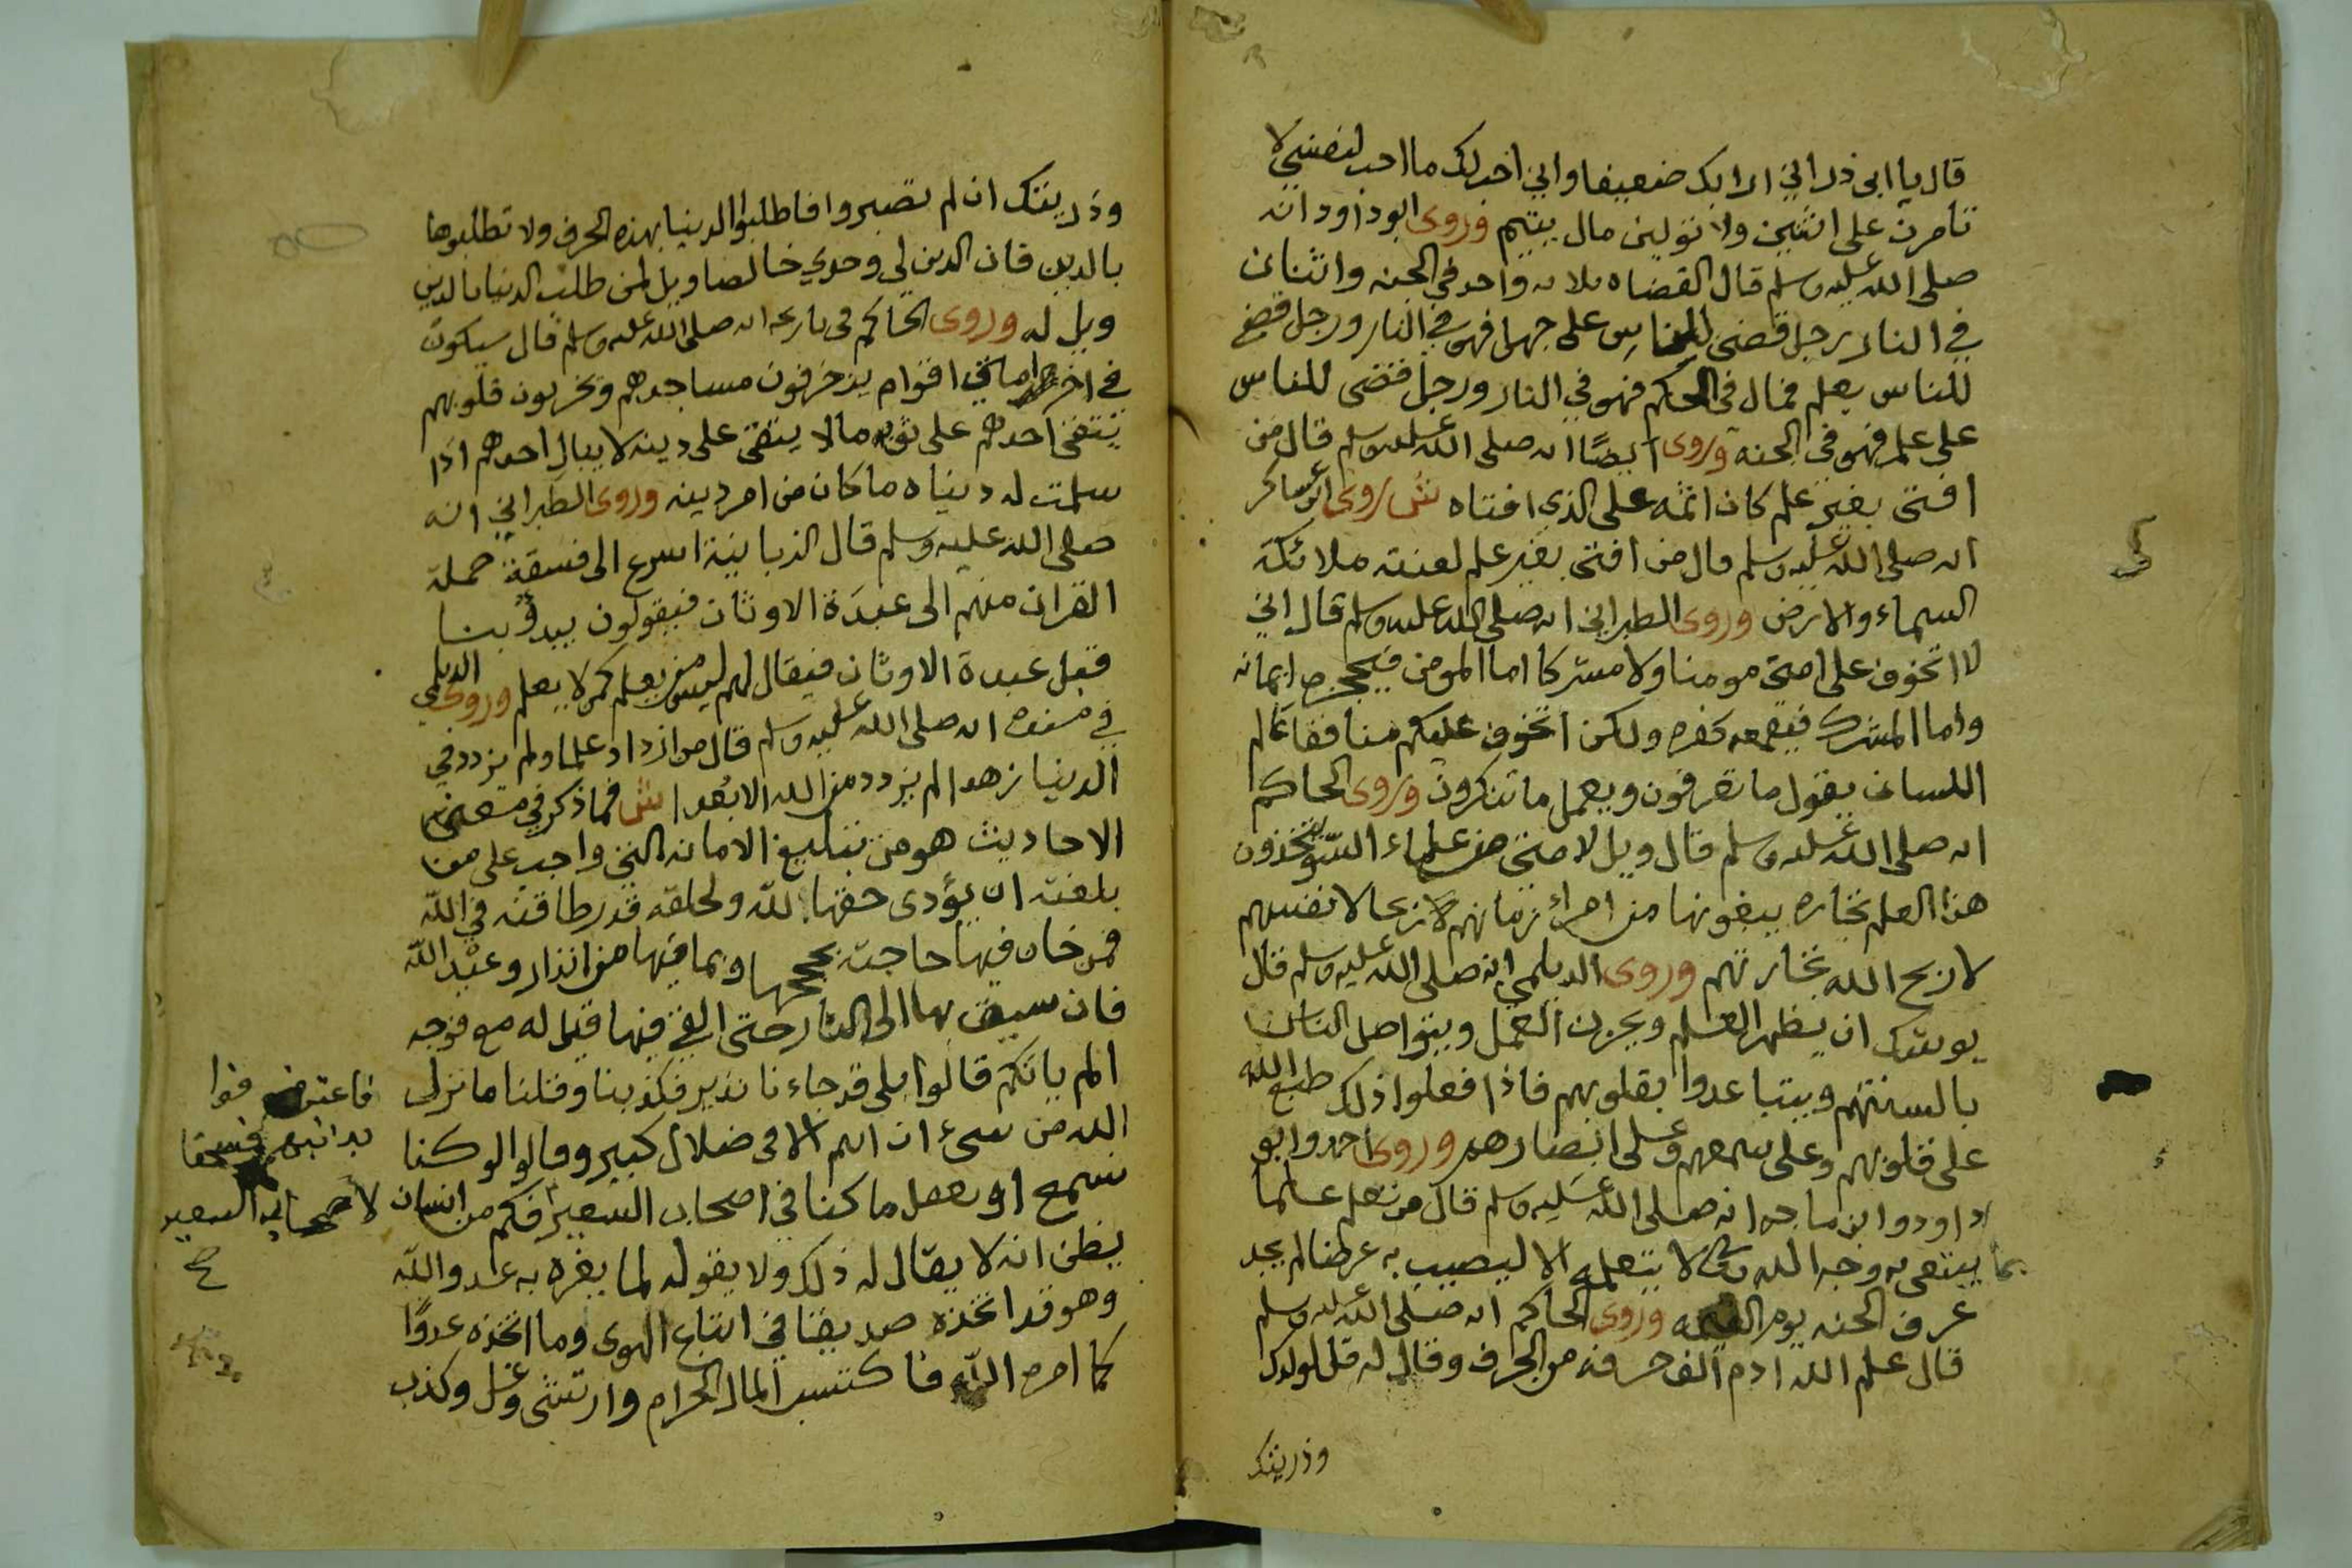 قال يا ابى ذر اني اراك ضعيفا واني احب لك ما احب لنفسي لا
تامرن على اثنين ولا تولين مال يتيم وروى ابو داود انه
صلى الله عليه وسلم قال القضاه ثلاثه واحد في الجنه واثنان
في النار رجل قضى للناس على جهل فهو في النار ورجل قضى
للناس بعلم فمال في الحكم فهو في النار ورجل قضى للناس
على علم فهو في الجنه وروى ايضًا انه صلى الله عليه وسلم قال من
افتى بغير علم كان اثمه على الذي افتاه روى ابن عساكر
انه صلى الله عليه وسلم قال من افتى بغير علم لعنته ملائكة
السماء والارض وروى الطبراني انه صلى الله عليه وسلم قال اني
لا اتخوف على امتى مومنا ولا مشركا اما المومن فيحجره ايمانه
واما المشرك فيقمعه كفره ولكن اتخوف عليكم منافقا عالم
اللسان يقول ما تعرفون ويعمل ما تنكرون وروى الحاكم
انه صلى الله عليه وسلم قال ويل لامتى من علماء السّو يتخذون
هذا العلم تجاره يبيعونها من امراء زمانهم ربحا لانفسهم
لا اربح الله تجارتهم وروى الديلمي انه صلى الله عليه وسلم قال
يوشك ان يظهر العلم ويخزن العمل ويتواصل الناس
بالسنتهم ويتباعدوا بقلوبهم فاذا فعلوا ذلك طبع الله
على قلوبهم وعلى سمعهم وعلى ابصارهم وروى احمد وابو
داودوا بن ماجه انه صلى الله عليه وسلم قال من تعلم علما
مما يبتغى به وجه الله لا يتعلمه الا ليصيب به عرضا لم يجد
عرف الجنه يوم القيمه وروى الحاكم انه صلى الله عليه وسلم
قال علم الله ادم الف حرفه من الحرف وقال له قل لولدك
وذريتك
وذريتك ان لم تصبروا فاطلبوا الدنيا بهذه الحرف ولا تطلبوها
بالدين فان الدين لي وحدي خالصا ويل لمن طلب الدنيا بالدين
ويل له وروى الحاكم في تاريخه انه صلى الله عليه وسلم قال سيكون
في اخر امتي اقوام يزخرفون مساجدهم ويخربون قلوبهم
يتقى احدهم على ثوبه مالا يتقى على دينه لا يبال احدهم اذا
سلمت له دنياه ما كان من امر دينه وروى الطبراني انه
صلى الله عليه وسلم قال الزبانية اسرع الى فسقة حملة
القران منهم الى عبدَة الاوثان فيقولون يبدؤ بنا
قبل عبدة الاوثان فيقال لهم ليس من يعلم كمن لا يعلم وروى الديلمي
في مسنده انه صلى الله عليه وسلم قال من ازداد علما ولم يزدد في
الدنيا زهدا لم يزدد من الله الا بُعدا فما ذكر في معنى
الاحاديث هو من تبليغ الامانه التي واجب على من
بلغته ان يؤدى حقها لله ولخلقه قدر طاقته في الله
فمن خان فيها حاجته بحججها وبما فيها من انذار وعبْد الله
فان سيق بها الى النار حتى القى فيها قيل له مع فوجه
الم ياتكم قالوا بلى قد جاءنا نذير فكذبنا وقلنا ما نزل
الله من شىء ان انتم الا في ضلال كبير وقالوا لو كنا
نسمع او نعقل ما كنا في اصحاب السعير فكم من انسان
يظن انه لا يقال له ذلك ولا يقوله لما يغره به عدو الله
وهو قد اتخذه صديقا في اتباع الهوى وما اتخذه عدوًا
كما امره الله فاكتسب المال الحرام وارتشى وغل وكذب
فاعترفوا
بذنبهم فسحقا
لاصحاب السعير
صح